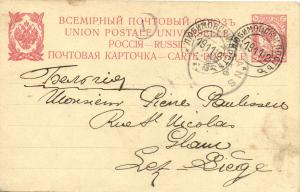 ВСЕМІРНЫЙ ПОЧТОВЫЙ СОЮЗЪ
UNION POSTALE UNIVERSELLE
РОССІЯ — RUSSIE
ПОЧТОВАЯ КАРТОЧКА — CARTE POSTALE
Бельгія
Monsieur Pierre Paulissen
Rue St Nicolas
Glain
Lez Liége